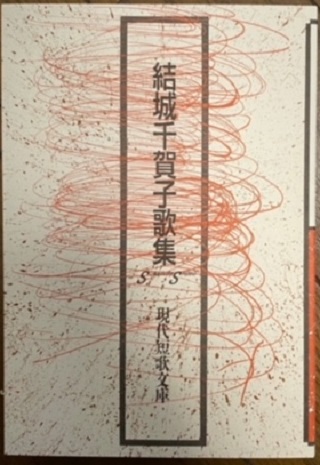 結城千賀子歌集
S S
現代短歌文庫